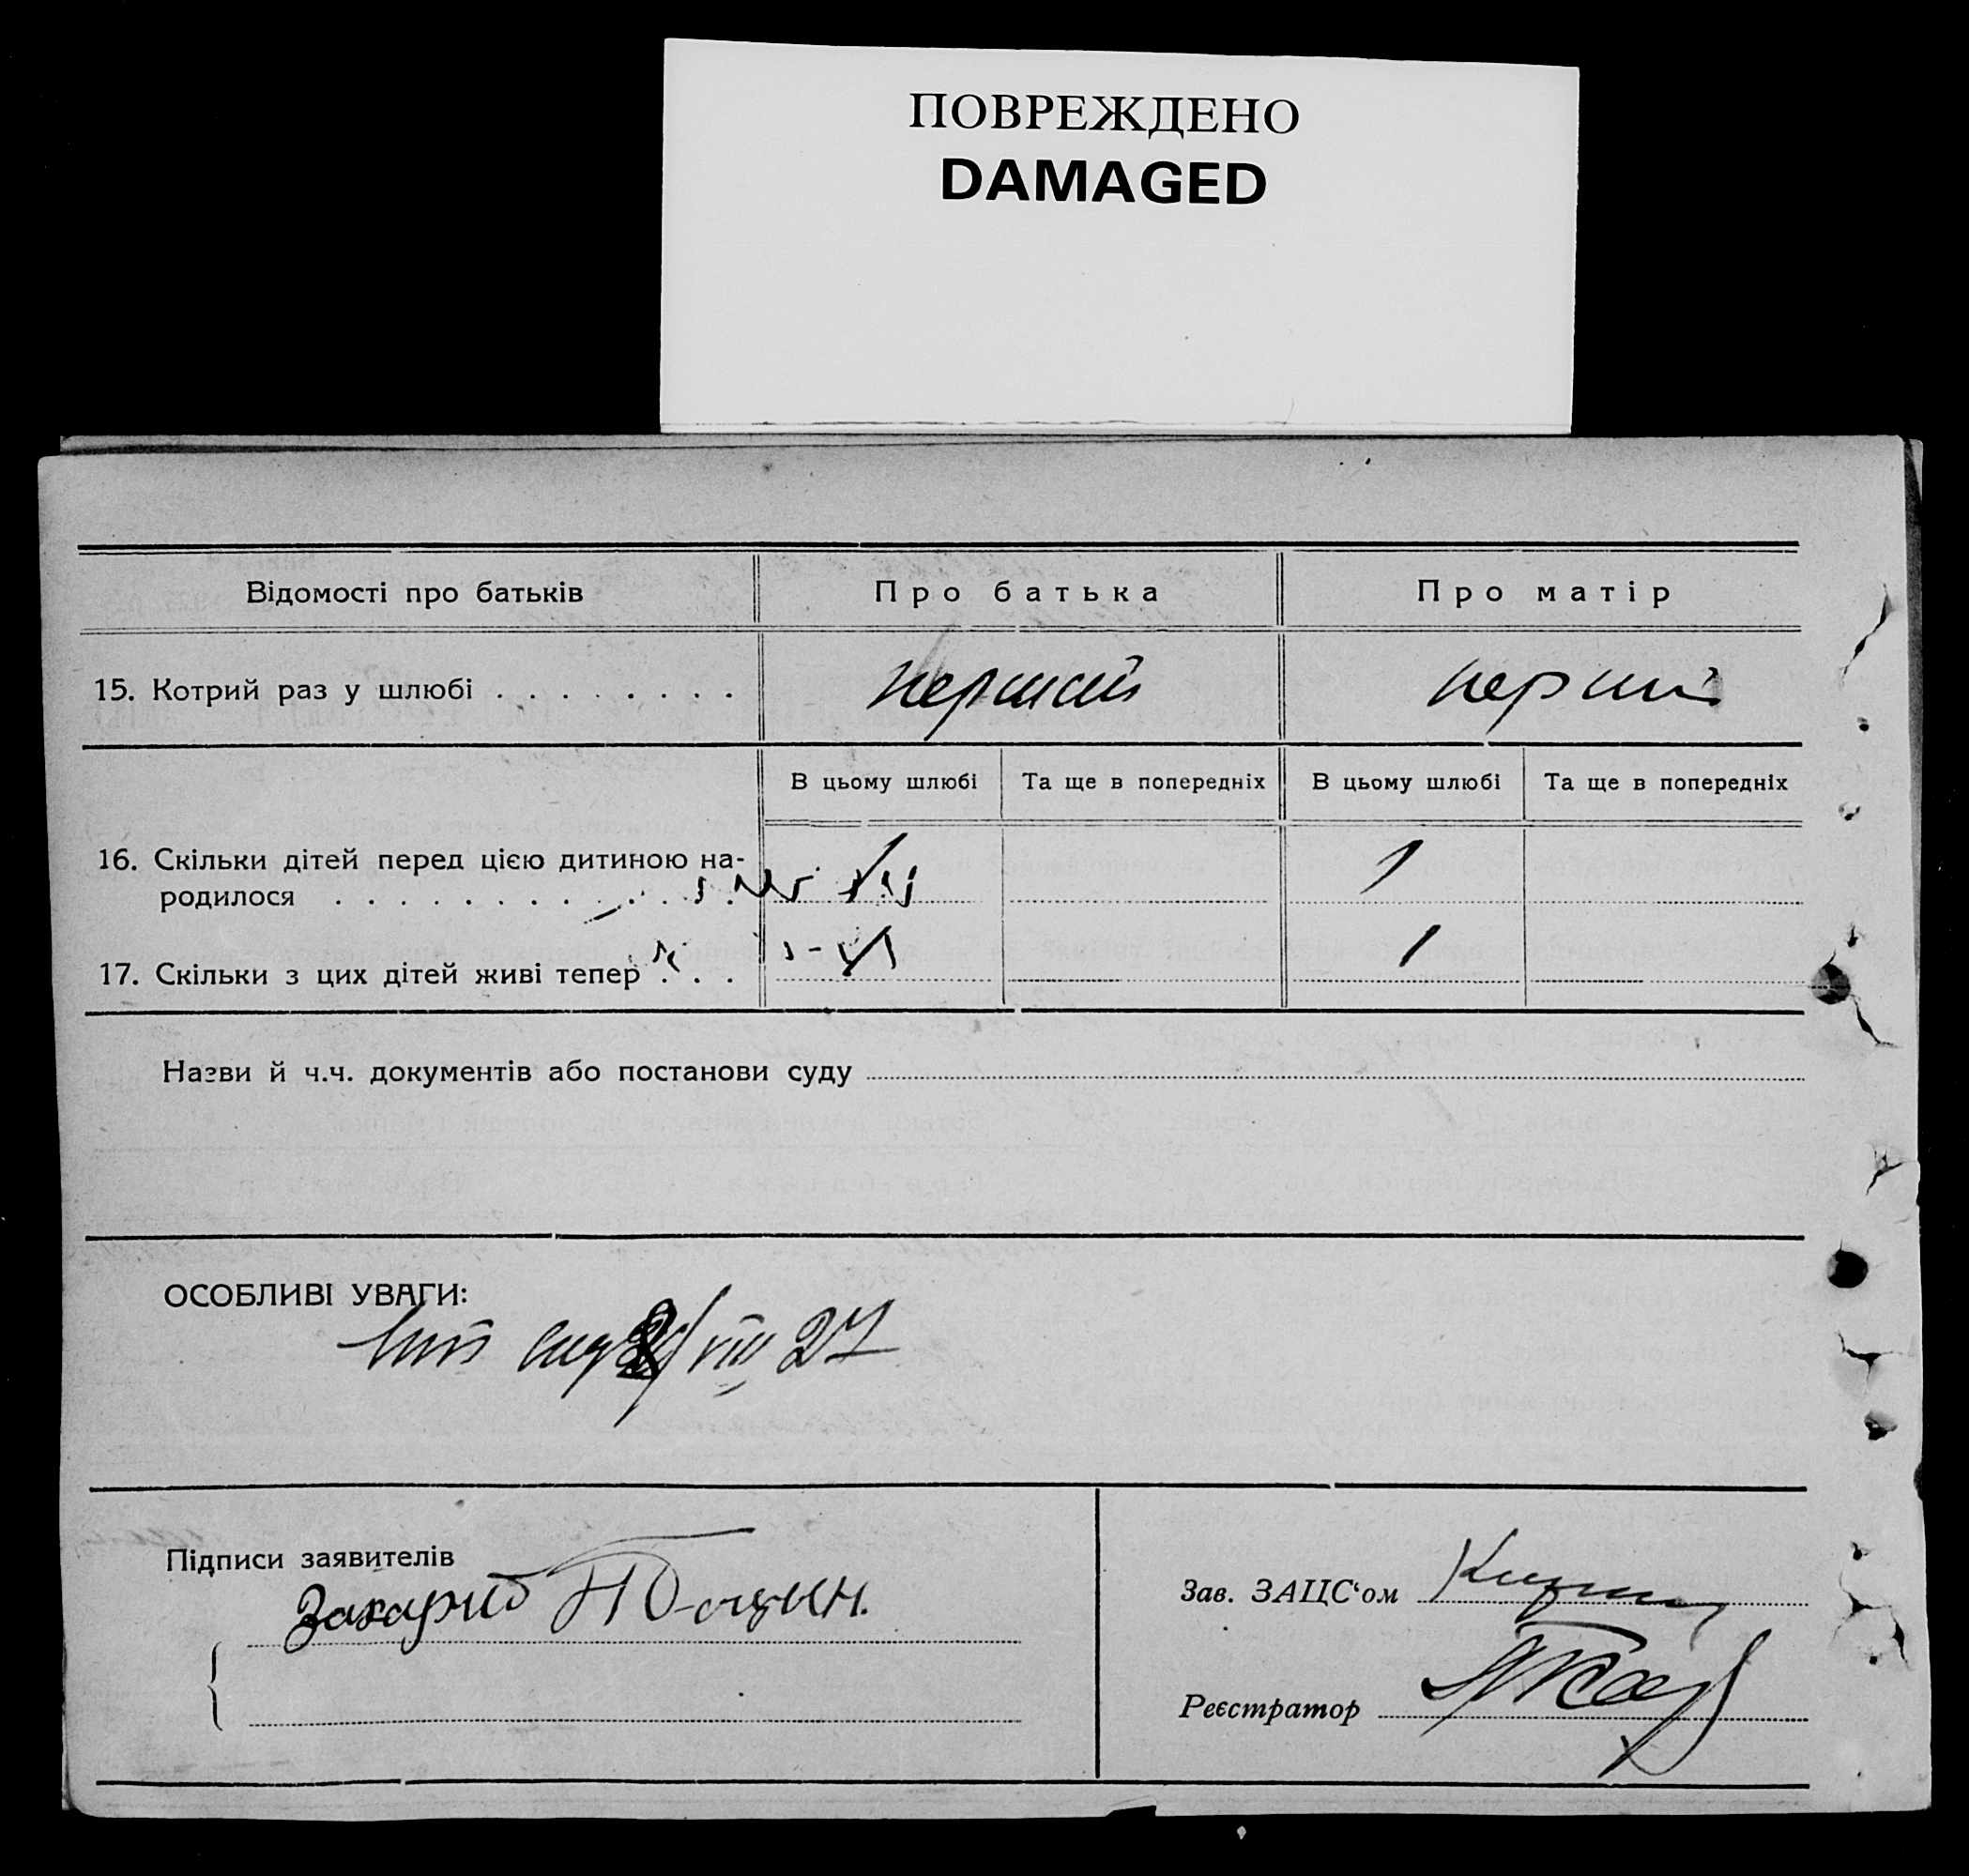 ПОВРЕЖДЕНО
DAMAGED
Відомості про батьків Про батька Про матір
15. Котрий раз у шлюбі . . . . . . . . перший перший
В цьому шлюбі Та ще в попередніх В цьому шлюбі Та ще в попередніх
16. Скільки дітей перед цією дитиною на-
родилося . . . . . . . . . . . . . 1
17. Скільки з цих дітей живі тепер . . . 1 1
Назви й ч.ч. документів або постанови суду
ОСОБЛИВІ УВАГИ:
VIII 27
Підписи заявителів
Зав. ЗАЦС‘ом
Реєстратор